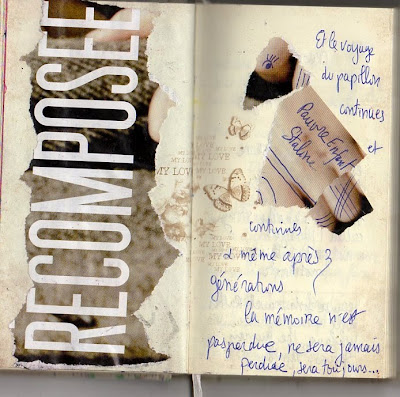 RECOMPOSEE
Et le voyage
du papillon
continues
et
Pauvre Enfant
Staline
MY LOVE
MY LOVE
MY LOVE
MY LOVE
continues
même après 3
générations.
la mémoire n'est
pas perdue, ne sera jamais
perdue, sera toujours...